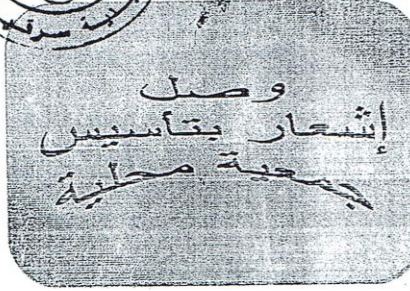 وصل
إشعار بتأسيس
جمعية محلية